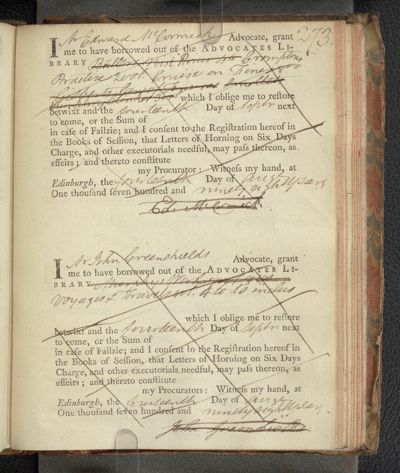 273.
I Mr Edward McCormick Advocate, grant
me to have borrowed out of the ADVOCATES LI-
BRARY
Practice 2 vol. Cruise on Fines
which I oblige me to restore
betwixt and the fourteenth Day of Septr next
to come, or the Sum of
in case of Failzie; and I consent to the Registration hereof in
the Books of Session, that Letters of Horning on Six Days
Charge, and other executorials needful, may pass thereon, as
effeirs; and thereto constitute
my Procurator: Witness my hand, at
Edinburgh, the fourteenth Day of Augt
One thousand seven hundred and ninety eight years
Ed: McCormick
I Mr John Greenshields Advocate, grant
me to have borrowed out of the ADVOCATES LI-
BRARY
Voyages & Travels vol. 4 to 10 inclus
which I oblige me to restore
betwixt and the fourteenth Day of Septr next
to come, or the Sum of
in case of Failzie; and I consent to the Registration hereof in
the Books of Session, that Letters of Horning on Six Days
Charge, and other executorials needful, may pass thereon, as
effeirs; and thereto constitute
my Procurators: Witness my hand, at
Edinburgh, the fourteenth Day of Augt
One thousand seven hundred and ninety eight years
John Greenshields